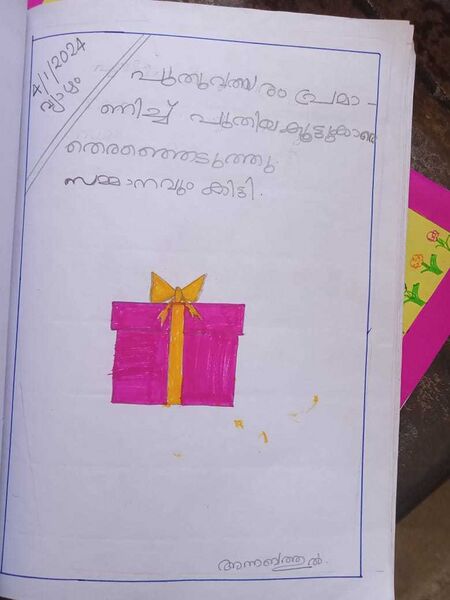 4/1/2024
വ്യാഴം
പുതുവത്സരം പ്രമാ-
ണിച്ച് പുതിയകൂട്ടുകാരെ
തെരഞ്ഞെടുത്തു.
സമ്മാനവും കിട്ടി.
അന്നബത്തൽ.